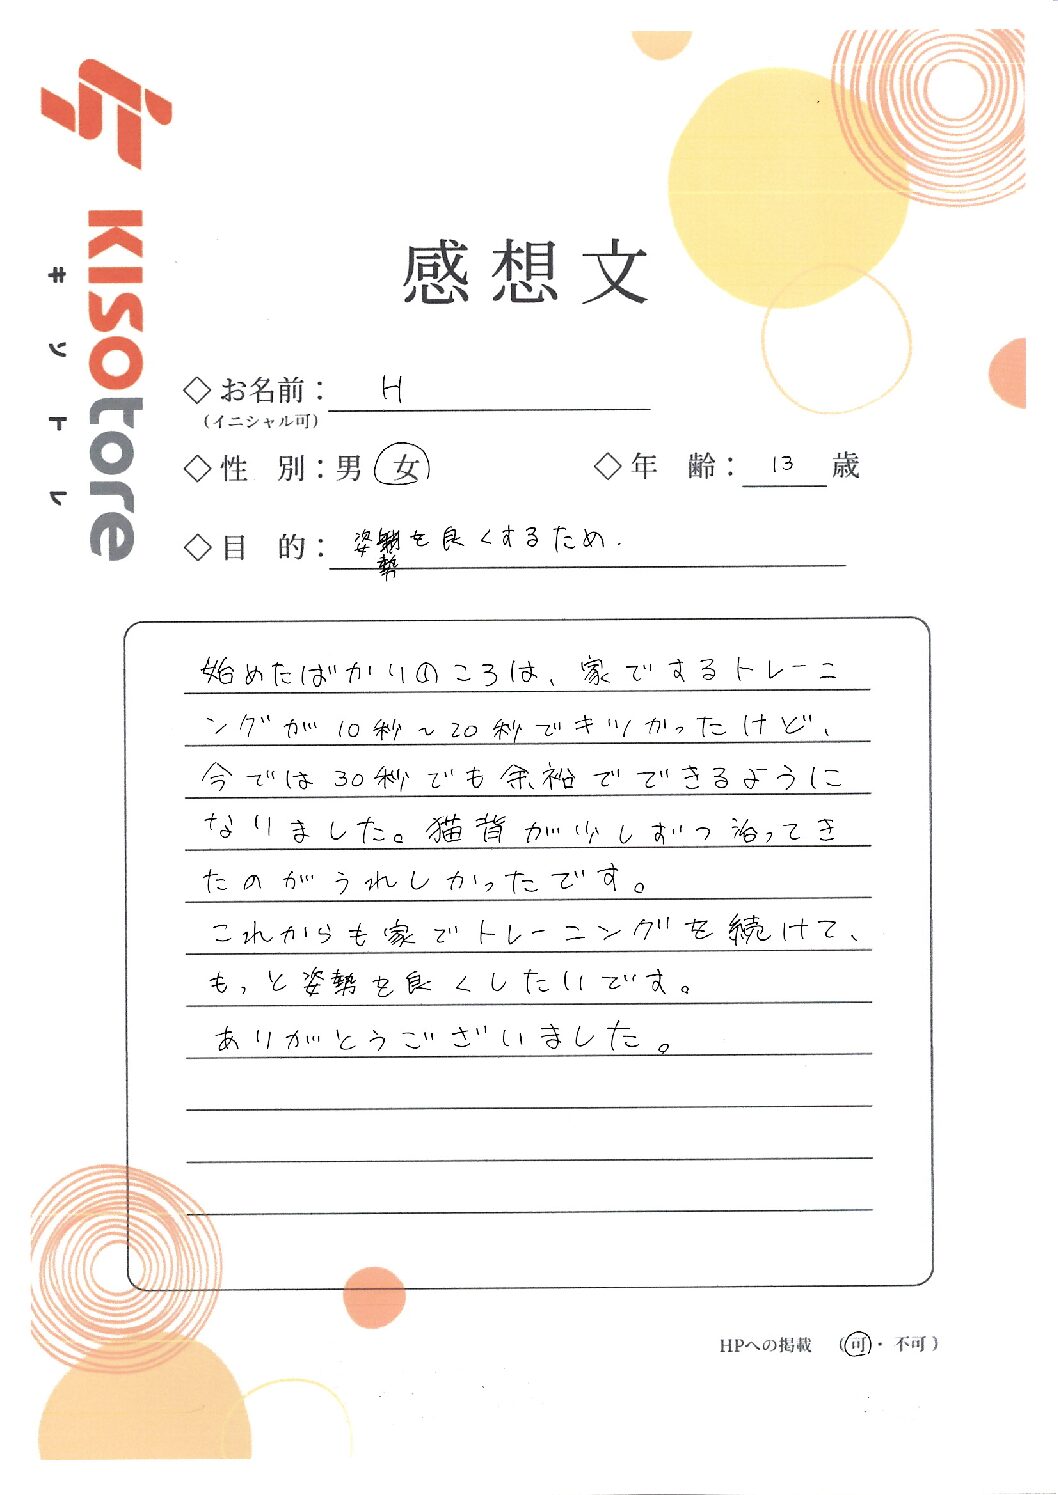 KISOtore
キソトレ
感想文
◇お名前： H
（イニシャル可）
◇性 別：男 女 ◇年 齢： 13 歳
◇目 的： 姿勢を良くするため.
始めたばかりのころは、家でするトレーニ
ングが10秒～20秒でキツかったけど、
今では30秒でも余裕でできるように
なりました。猫背が少しずつ治ってき
たのがうれしかったです。
これからも家でトレーニングを続けて、
もっと姿勢を良くしたいです。
ありがとうございました。
HPへの掲載 （可・不可）